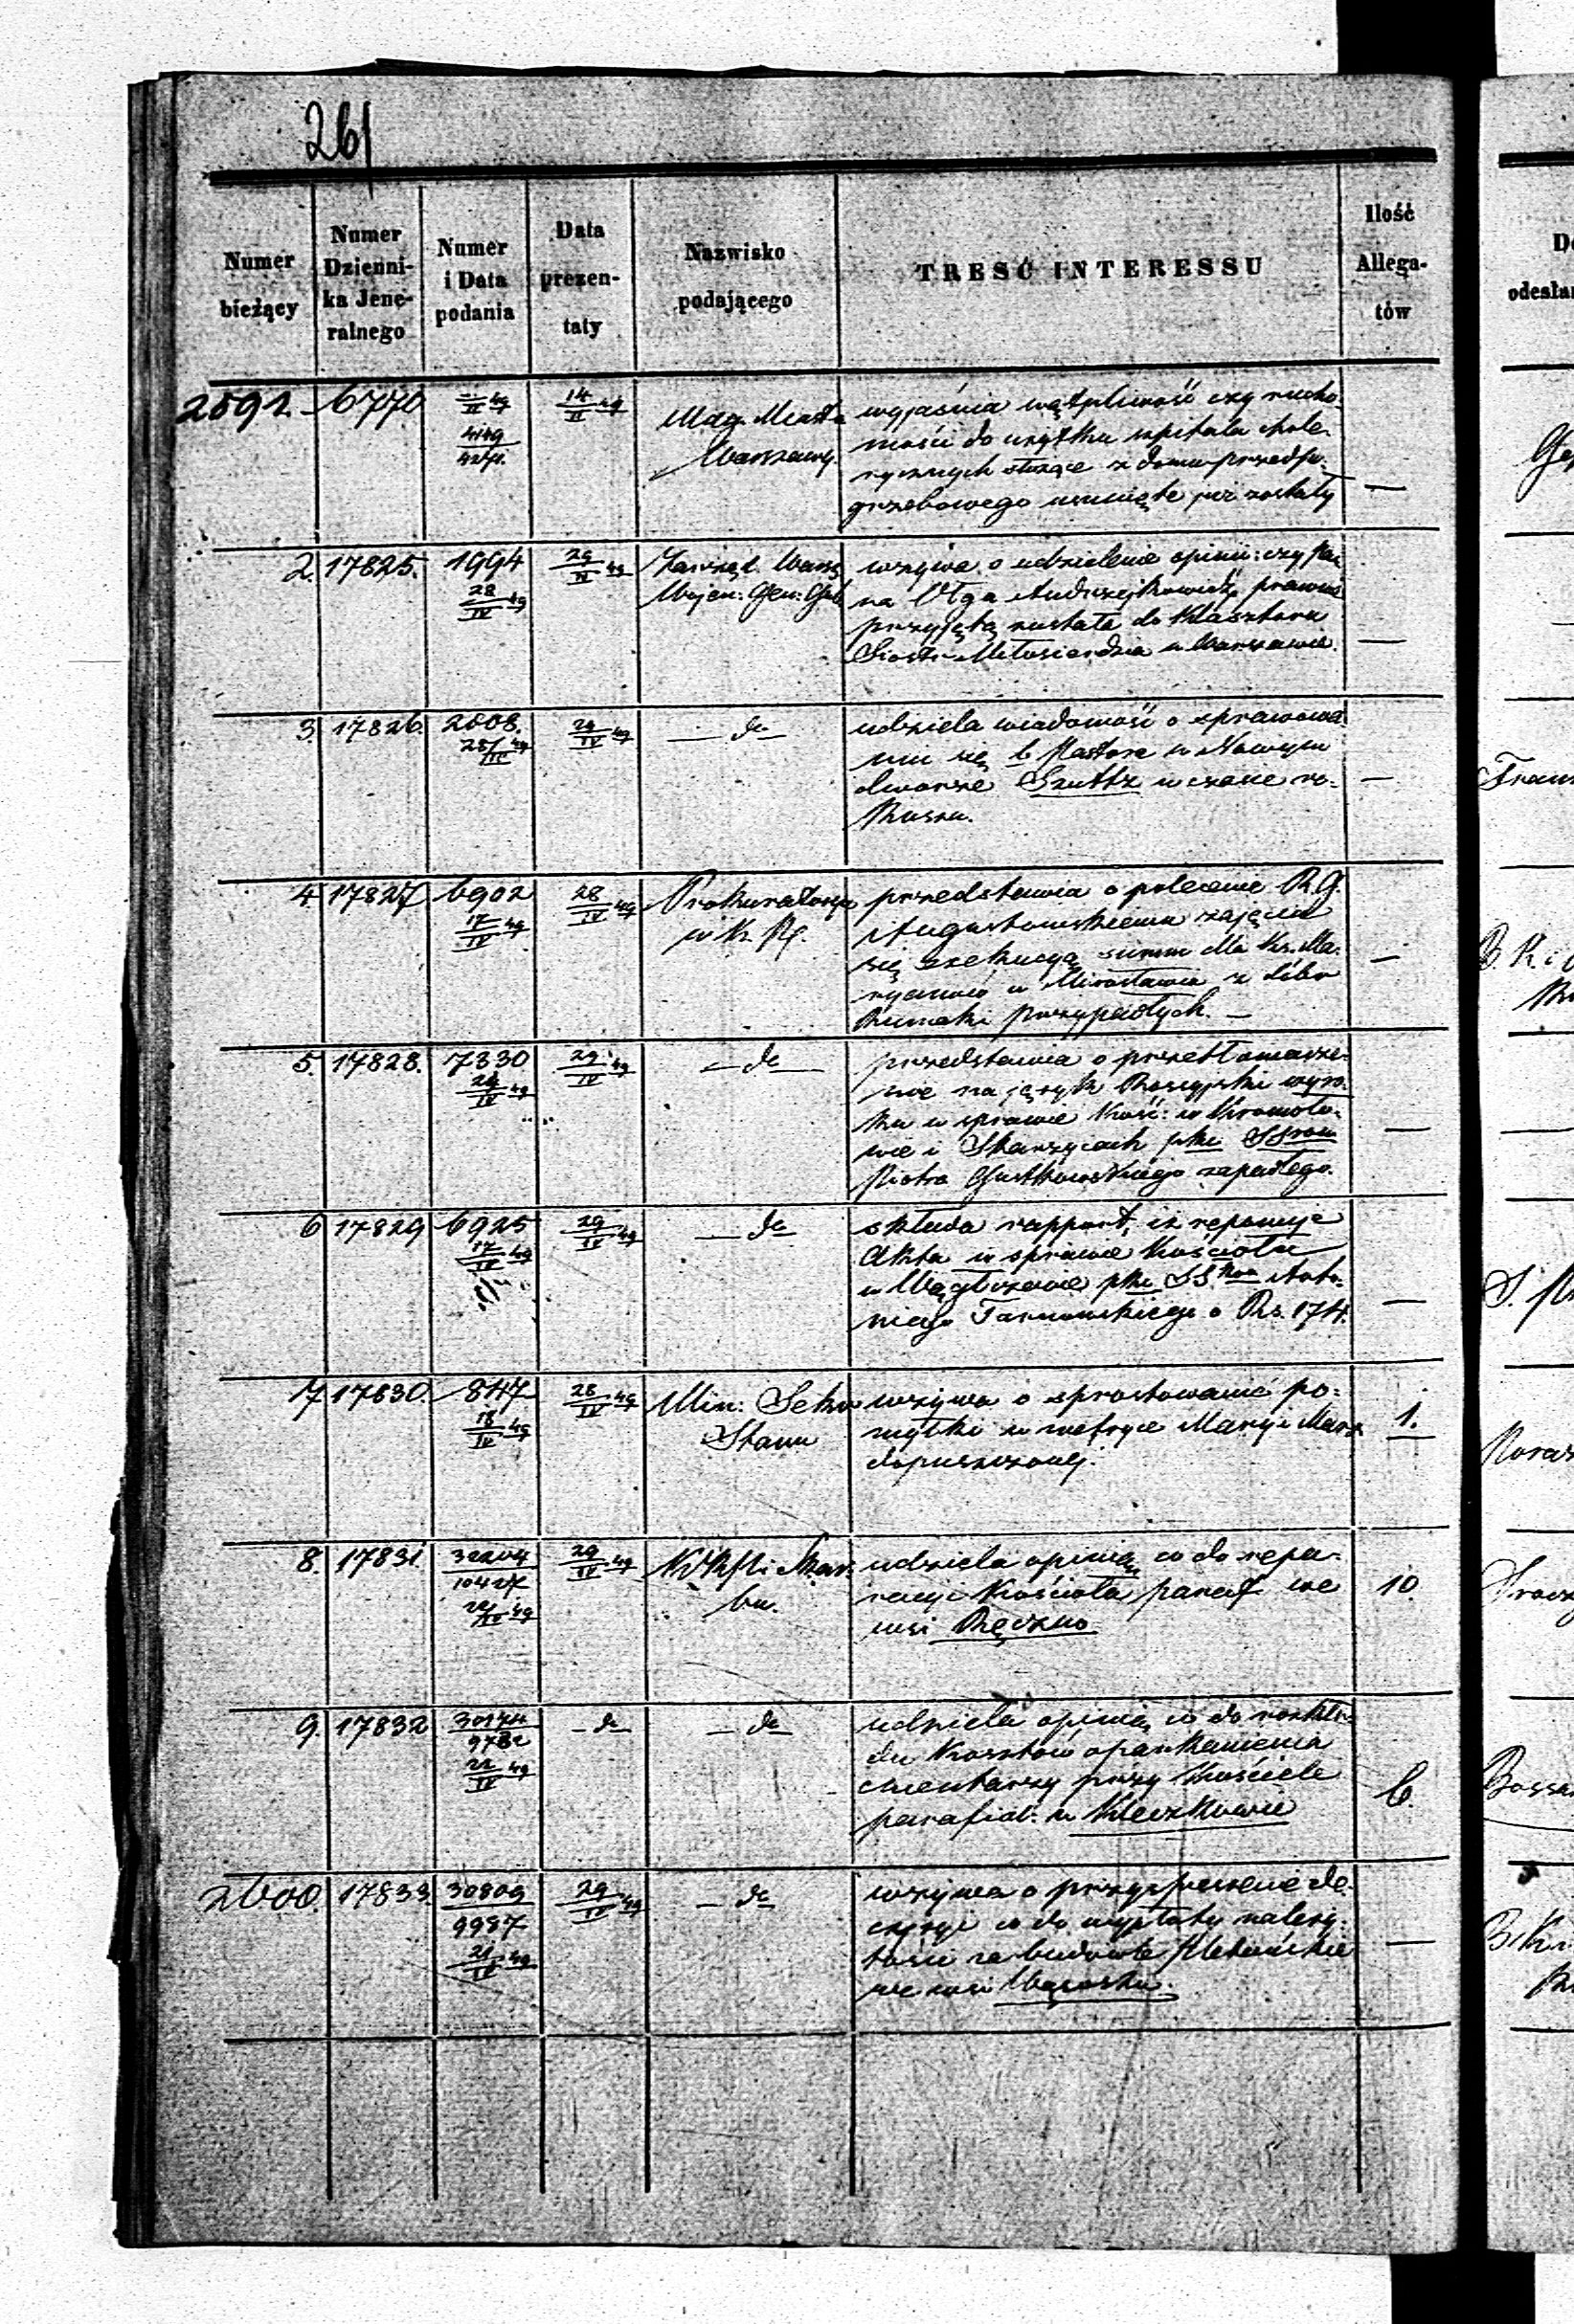 261
Numer bieżący
Numer Dzienni-ka Jene-ralnego
Numer i Data podania
Data prezen-taty
Nazwisko podającego
TREŚĆ INTERESSU
Ilość Allega-tów
2591. 6770
4149
4271.
14/II 49
Mag. Miasta
Warszawy.
wyjaśnia wątpliwość czy rucho-
mości do użytku szpitala chole-
rycznych służące z domu przedpo-
grzebowego usunięte już zostały
—
2. 17825. 1994
28/IV 49
29/IV 49
Zarząd. Warsz.
Wojen: Gen: Gub.
wzywa o udzielenie opinii: czy Pan-
na Olga Andrzejkowicz prawnie
przyjętą została do Klasztoru
Sióstr Miłosierdzia w Warszawie.
—
3. 17826. 2008.
28/IV 49
29/IV 49
— do —
udziela wiadomość o sprawowa-
niu się b. Pastora w Nowym
dworze Szultz w czasie ro-
koszu.
—
4. 17827 6902
17/IV 49
28/IV 49
Prokuratorya
w K. P.
przedstawia o polecenie R.G.
Augustowskiemu zajęcia
się exekucyą summ dla Ks. Ma-
ryanów w Mirosławiu z dóbr
Kumetki przypadłych. —
—
5. 17828. 7330
24/IV 49
29/IV 49
— do —
przedstawia o przetłomacze-
nie na język Rossyjski wyro-
ku w sprawie Kość: w Kromoło-
wie i Skarzycach pko SSrom
Piotra Gustkowskiego zapadłego.
—
6 17829 6925
17/IV 49
29/IV 49
— do
składa rapport, iż reponuje
Akta w sprawie Kościoła
w Węgłczewie pko SS.rom Anto-
niego Tarnowskiego o Rs. 174.
—
7 17830. 847
18/IV 49
28/IV 49
Min: Sekr.
Stanu
wzywa o sprostowanie po-
myłki w metryce Maryi Marx
dopuszczonej.
1.
8. 17831 32204
10427
29/IV 49
KRPi Skar-
bu.
udziela opinią co do repa-
racyi Kościoła paraf. we
wsi Ręczno
10.
9. 17832 30174
9782
22/IV 49
— do
— do
udziela opinią co do rozkła-
du kosztów oparkanienia
cmentarzy przy Kościele
parafial: w Kleczkowie
6.
2600. 17833. 30809
9987
21/IV 49
29/IV 49
— do
wzywa o przyspieszenie de-
cyzyi co do wypłaty należy-
tości za budowle Plebańskie
we wsi Wąsoshu.
—